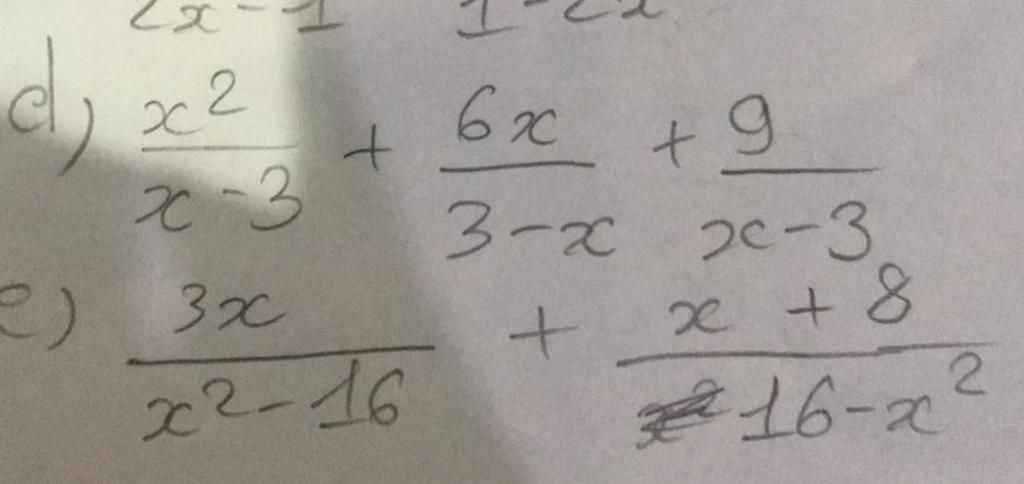 2x-1 1-2x
d) x²/x-3 + 6x/3-x + 9/x-3
e) 3x/x²-16 + x+8/16-x²